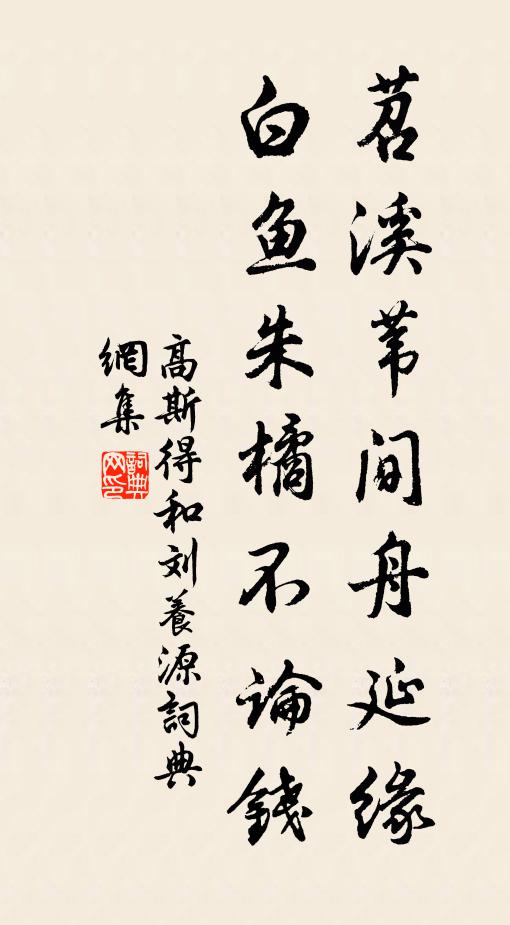 苕溪苇间舟延缘
白鱼朱橘不论錢
高斯得和刘養源詞典
網集
詞典網印